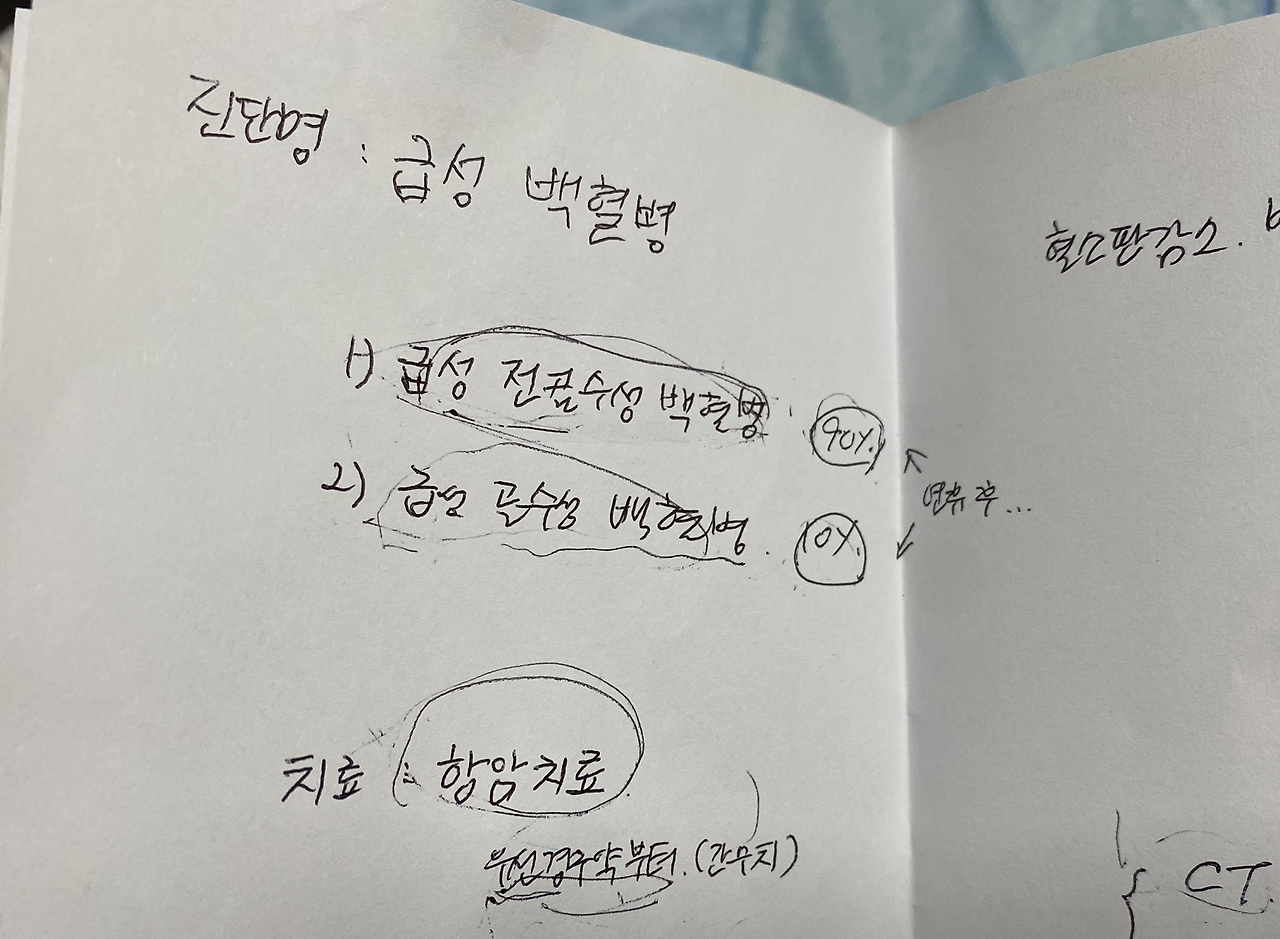 진단명 : 급성 백혈병
1) 급성 전골수성 백혈병 90%.
2) 급성 골수성 백혈병. 10%.
후...
치료 : 항암치료.
우선경구약부터. (간무지)
혈소판감소.
CT.